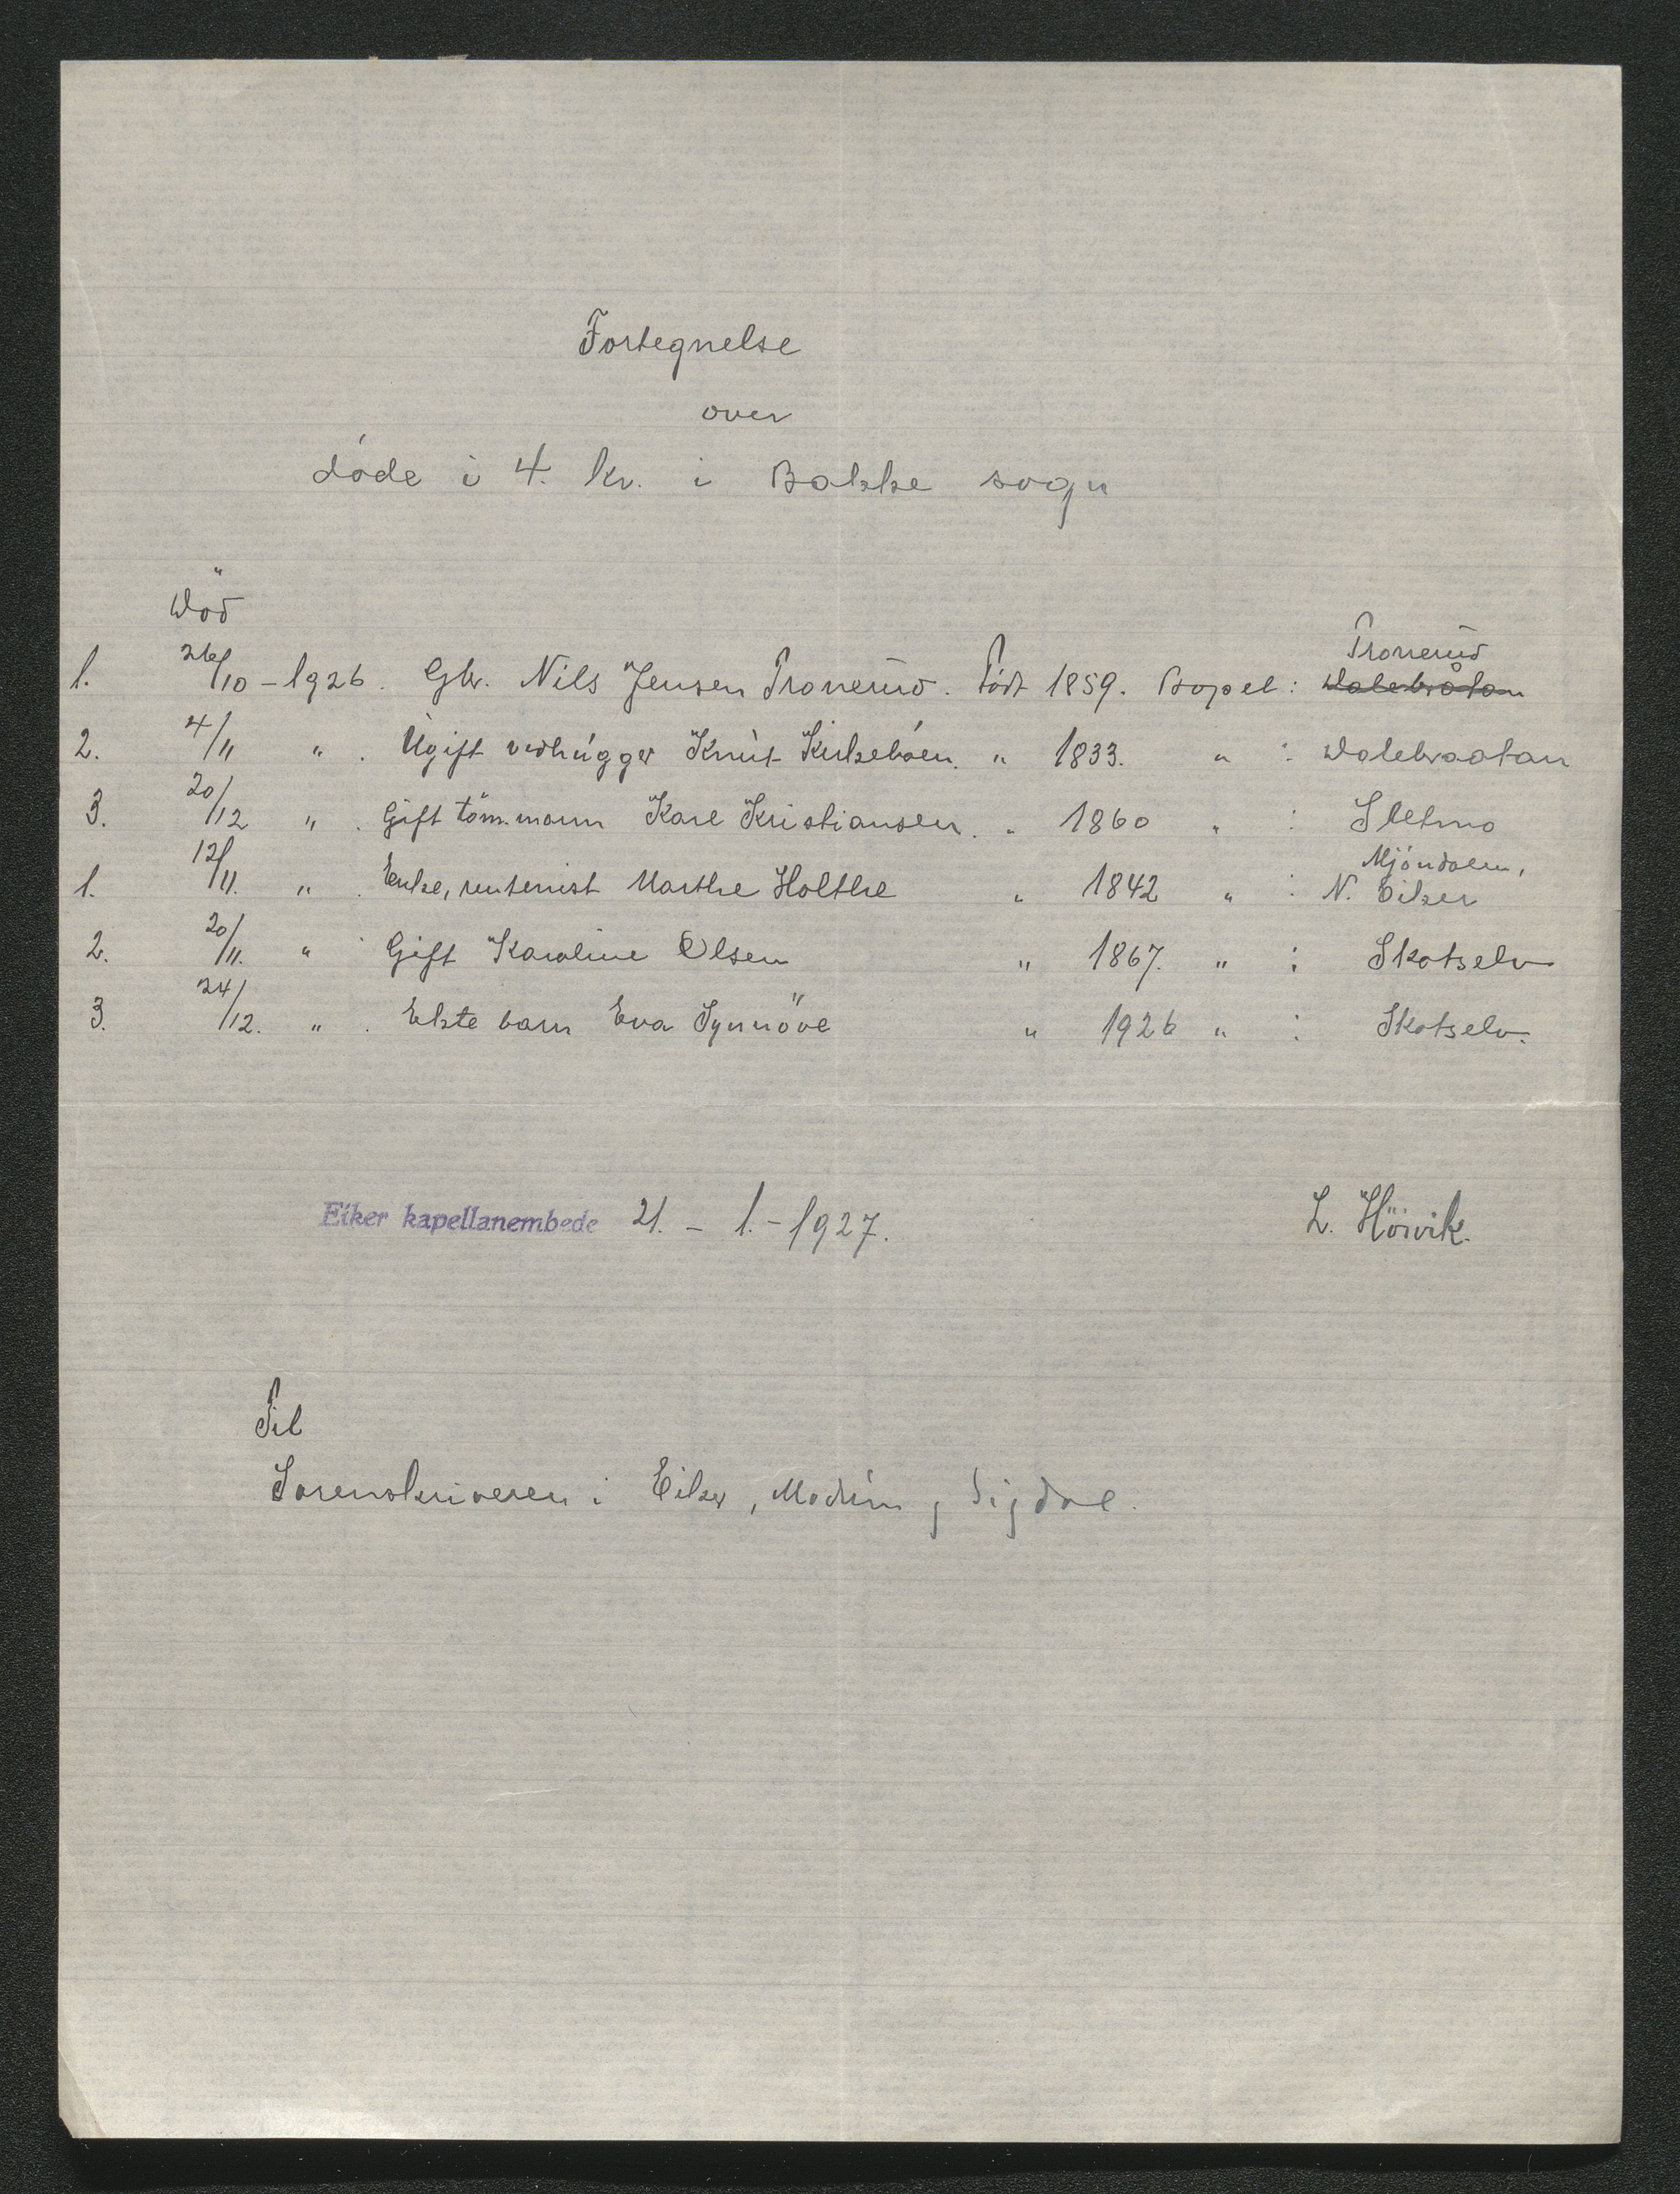 Fortegnelse
over
døde i 4. kv. i Bakke sogn
Död
1. 26/10 - 1926. Gbr. Nils Jensen Tronerud. Födt 1859. Bopel: Tronerud
2. 4/11 " . Ugift vedhugger Knut Kirkebøen. " 1833. " : Dalebraatan
3. 20/12 " . Gift töm.mann Karl Kristiansen. " 1860 " : Sletmo
1. 12/11. " . Enke, rentenist Marthe Holthe " 1842 " : Mjøndalen, N. Eiker
2. 20/11. " . Gift Karoline Olsen " 1867. " : Skotselv
3. 24/12. " . Ekte barn Eva Synnöve " 1926 " : Skotselv.
Eiker kapellanembede 21. - 1. - 1927. L. Höivik.
Til
Sorenskriveren i Eiker, Modum, Sigdal.